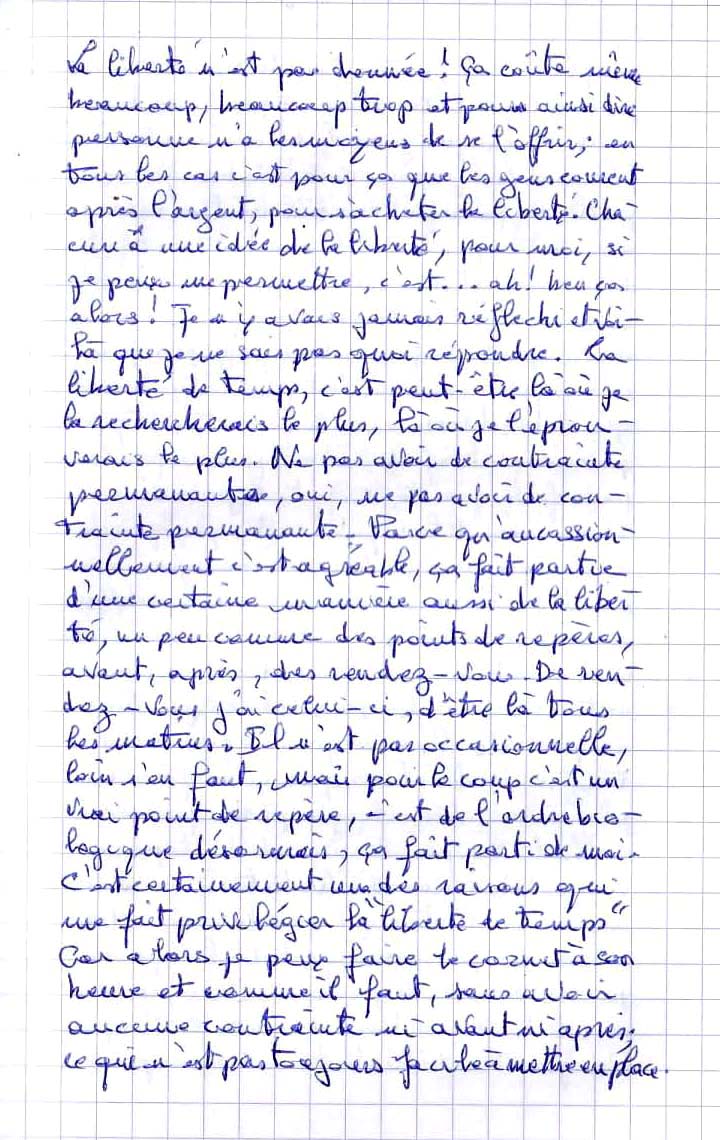 La liberté n'est pas donnée! ça coûte même
beaucoup, beaucoup trop et pour ainsi dire
personne n'a les moyens de se l'offrir; en
tous les cas c'est pour ça que les gens courent
après l'argent, pour s'acheter la liberté. Cha-
cun à une idée de la liberté, pour moi, si
je peux me permettre, c'est... ah! ben ça
alors! Je n'y avais jamais réfléchi et voi-
là que je ne sais pas quoi répondre. La
liberté de temps, c'est peut-être là où je
la rechercherais le plus, là où je l'éprou-
verais le plus. Ne pas avoir de contrainte
permanante, oui, ne pas avoir de con-
trainte permanante. Parce qu'aucassion-
nellement c'est agréable, ça fait partie
d'une certaine manière aussi de la liber
té, un peu comme des points de repères,
avant, après, des rendez-vous. De ren-
dez-vous j'ai celui-ci, d'être là tous
les matins. Il n'est pas occasionnelle,
loin s'en faut, mais pour le coup c'est un
vrai point de repère, c'est de l'ordre bio-
logique désormais, ça fait parti de moi.
C'est certainement une des raisons qui
me fait privilégier la "liberté de temps"
Car alors je peux faire le carnet à son
heure et comme il faut, sans avoir
aucune contrainte ni avant ni après;
ce qui n'est pas toujours facile à mettre en place.